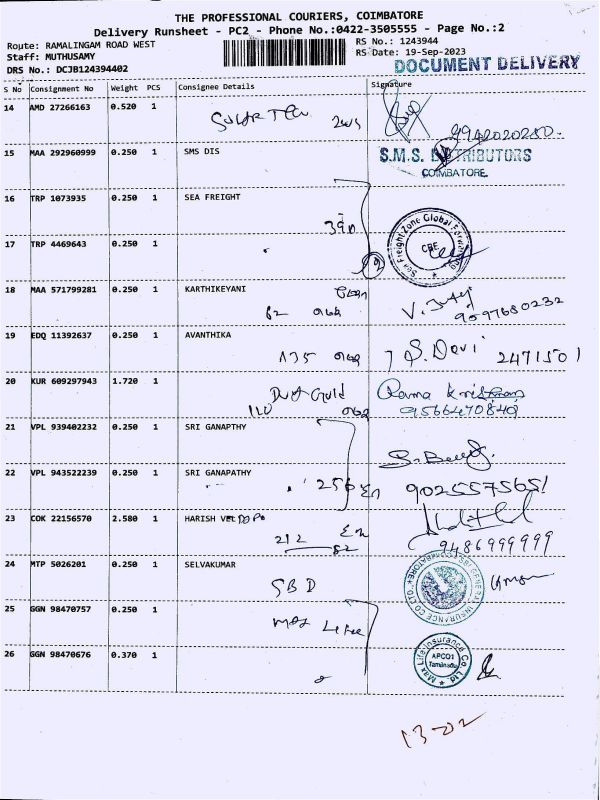 THE PROFESSIONAL COURIERS, COIMBATORE
Delivery Runsheet - PC2 - Phone No.:0422-3505555 - Page No.:2
Route: RAMALINGAM ROAD WEST
RS No.: 1243944
Staff: MUTHUSAMY
RS Date: 19-Sep-2023
DRS No.: DCJB124394402
DOCUMENT DELIVERY
S No Consignment No Weight PCS Consignee Details Signature
14 AMD 27266163 0.520 1
9942020280
15 MAA 292960999 0.250 1 SMS DIS
S.M.S. DISTRIBUTORS
COIMBATORE
16 TRP 1073935 0.250 1 SEA FREIGHT
390
17 TRP 4469643 0.250 1
Sea Freight Zone Global Forwarding
CBE
18 MAA 571799281 0.250 1 KARTHIKEYANI
82
9597680232
19 EDQ 11392637 0.250 1 AVANTHIKA
135
S. Devi 2471501
20 KUR 609297943 1.720 1
110
Rama Krishnan
9566470840
21 VPL 939402232 0.250 1 SRI GANAPTHY
22 VPL 943522239 0.250 1 SRI GANAPATHY
256
9025575651
23 COK 22156570 2.580 1 HARISH
212
82
9486999999
24 MTP 5026201 0.250 1 SELVAKUMAR
SBD
SBI GENERAL INSURANCE CO LTD
25 GGN 98470757 0.250 1
Max Life
26 GGN 98470676 0.370 1
Max Life Insurance Co. Ltd
APCO1
Taminadu
13-02